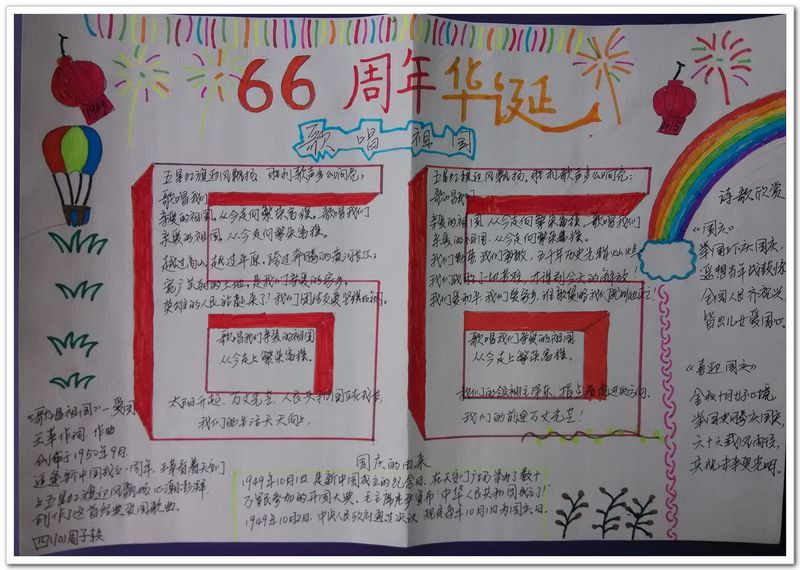 66周年华诞
歌唱祖国
1949
2015
五星红旗迎风飘扬，胜利歌声多么响亮；
歌唱我们
亲爱的祖国，从今走向繁荣富强。歌唱我们
亲爱的祖国，从今走向繁荣富强。
越过高山，越过平原，跨过奔腾的黄河长江；
宽广美丽的土地，是我们亲爱的家乡，
英雄的人民站起来了！我们团结友爱坚强如钢。
歌唱我们亲爱的祖国
从今走上繁荣富强。
太阳升起，万丈光芒，人民共和国正在成长，
我们的生活天天向上，
五星红旗迎风飘扬，胜利歌声多么响亮；
歌唱我们
亲爱的祖国，从今走向繁荣富强。歌唱我们
亲爱的祖国，从今走向繁荣富强。
我们勤劳我们勇敢，五千年历史光辉灿烂
我们战胜了一切苦难，才得到今天的解放！
我们爱和平我们爱家乡，谁敢侵略我们就叫他灭亡！
歌唱我们亲爱的祖国
从今走上繁荣富强。
我们的领袖毛泽东，指引着前进的方向，
我们的前途万丈光芒！
诗歌欣赏
《国庆》
举国上下庆国庆，
遥想当年战旗惊
全国人民齐振兴
皆出儿女爱国心。
《喜迎国庆》
金秋十月好心境
举国欢腾庆国庆，
六十六载风雨后，
共祝未来更光明。
《歌唱祖国》—爱国
王莘作词 作曲
创作于1950年9月
适逢新中国成立一周年，王莘看着天安门
上五星红旗迎风飘扬，心潮澎湃
创作了这首经典爱国歌曲。
国庆的由来
1949年10月1日是新中国成立的纪念日。在天安门广场举办了数十
万军民参加的开国大典，毛主席庄严宣布"中华人民共和国成立了！
1949年10月2日，中央人民政府通过决议，规定每年10月1日为国庆日。
四(10)周子轶